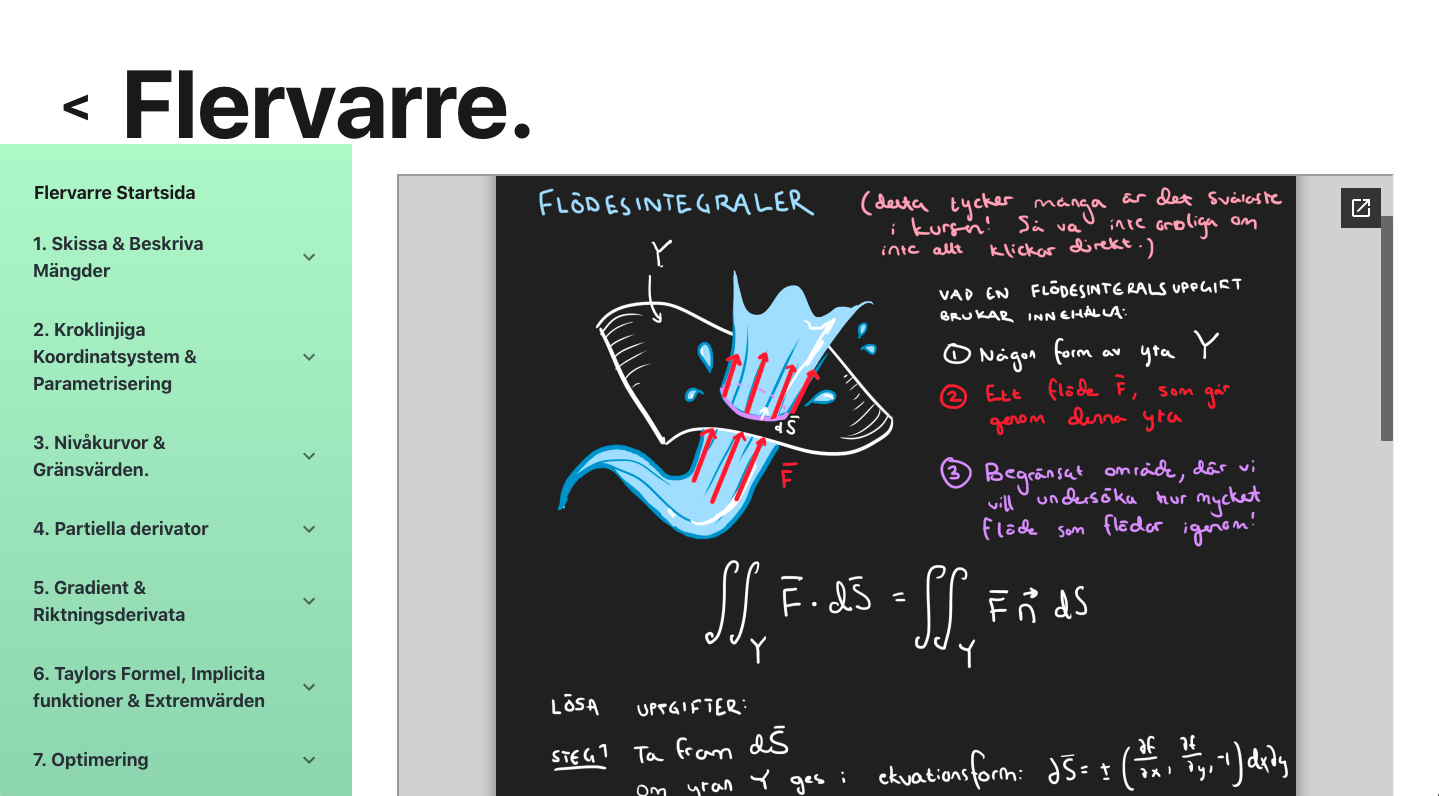 < Flervarre.
Flervarre Startsida
1. Skissa & Beskriva
Mängder
2. Kroklinjiga
Koordinatsystem &
Parametrisering
3. Nivåkurvor &
Gränsvärden.
4. Partiella derivator
5. Gradient &
Riktningsderivata
6. Taylors Formel, Implicita
funktioner & Extremvärden
7. Optimering
FLÖDESINTEGRALER
(detta tycker många är det svåraste
i kursen! Så va inte oroliga om
inte allt klickar direkt.)
Y
dS̄
F̄
VAD EN FLÖDESINTERALSUPPGIFT
BRUKAR INNEHÅLLA:
① Någon form av yta Y
② Ett flöde F̄, som går
genom denna yta
③ Begränsat område, där vi
vill undersöka hur mycket
flöde som flödar igenom!
∬_Y F̄ · dS̄ = ∬_Y F̄ n⃗ dS
LÖSA UPPGIFTER:
STEG 1 Ta fram dS̄
om ytan Y ges i ekvationsform: dS̄ = ± (∂f/∂x, ∂f/∂y, -1) dxdy